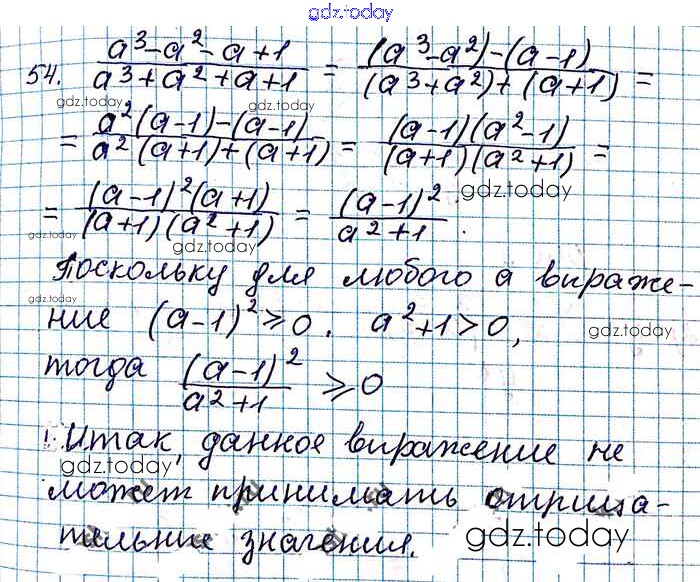 gdz.today
54. (a³-a²-a+1)/(a³+a²+a+1) = ((a³-a²)-(a-1))/((a³+a²)+(a+1)) =
gdz.today gdz.today
= (a²(a-1)-(a-1))/(a²(a+1)+(a+1)) = ((a-1)(a²-1))/((a+1)(a²+1)) =
gdz.today gdz.today
= ((a-1)²(a+1))/((a+1)(a²+1)) = (a-1)²/(a²+1).
gdz.today gdz.today
Поскольку для любого a выраже-
gdz.today
ние (a-1)²≥0, a²+1>0,
gdz.today
тогда (a-1)²/(a²+1) ≥0
Итак, данное выражение не
gdz.today
может принимать отрица-
тельные значения.
gdz.today